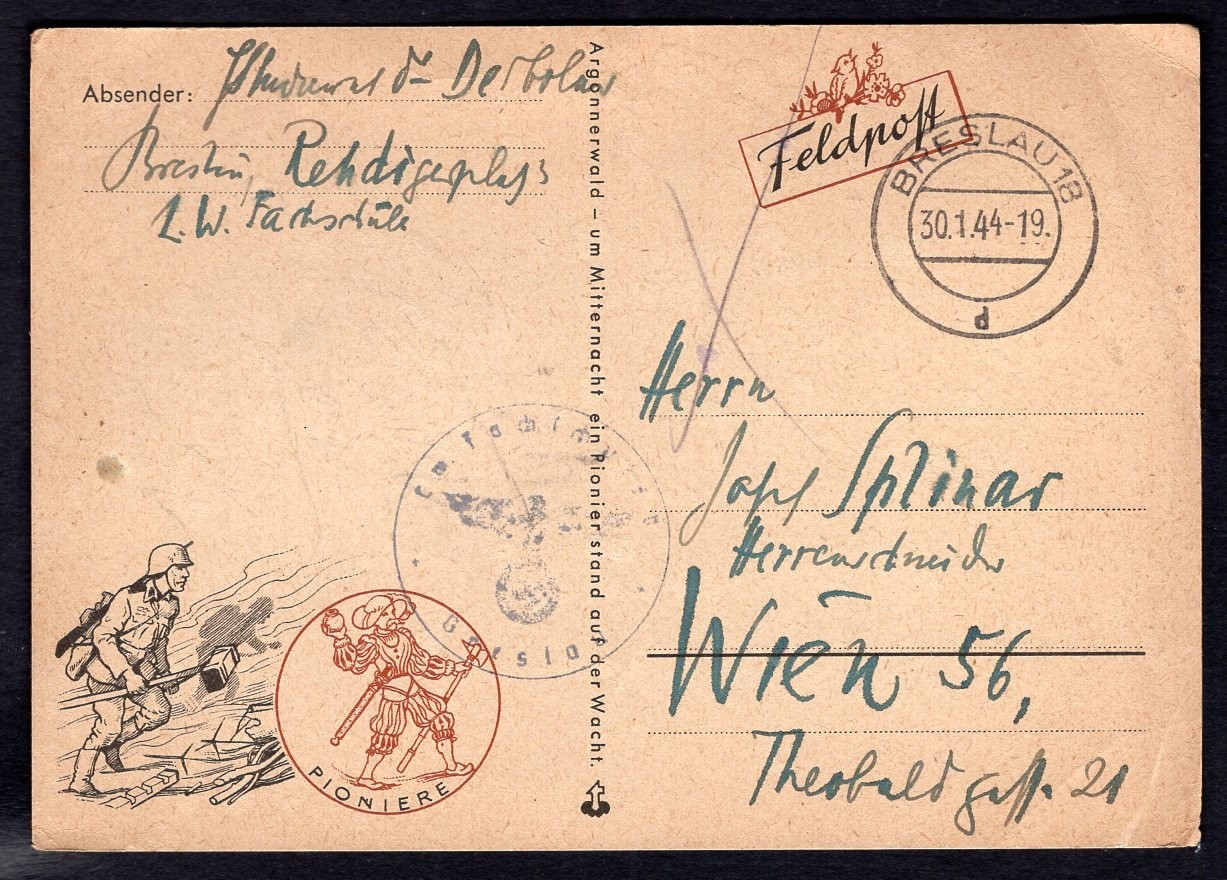 Absender:
Derbolav
Breslau, Rehdigerplatz 3
L.W. Fachschule
Argonnerwald – um Mitternacht ein Pionier stand auf der Wacht.
Feldpost
BRESLAU 18
30.1.44-19.
d
Herrn
Josef Splinar
Herrenschneider
Wien 56,
Theobaldgasse 21
PIONIERE
Breslau